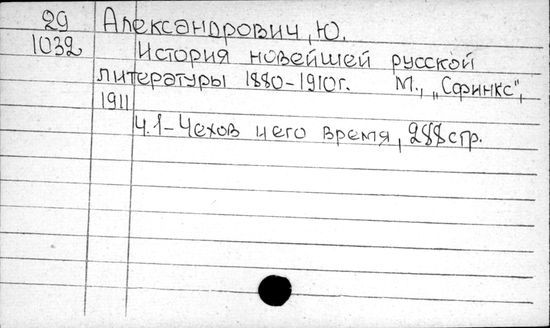 29 Александрович, Ю.
1032 История новейшей русской
литературы 1880-1910г. М., „Сфинкс",
1911
Ч.1-Чехов и его время, 288стр.